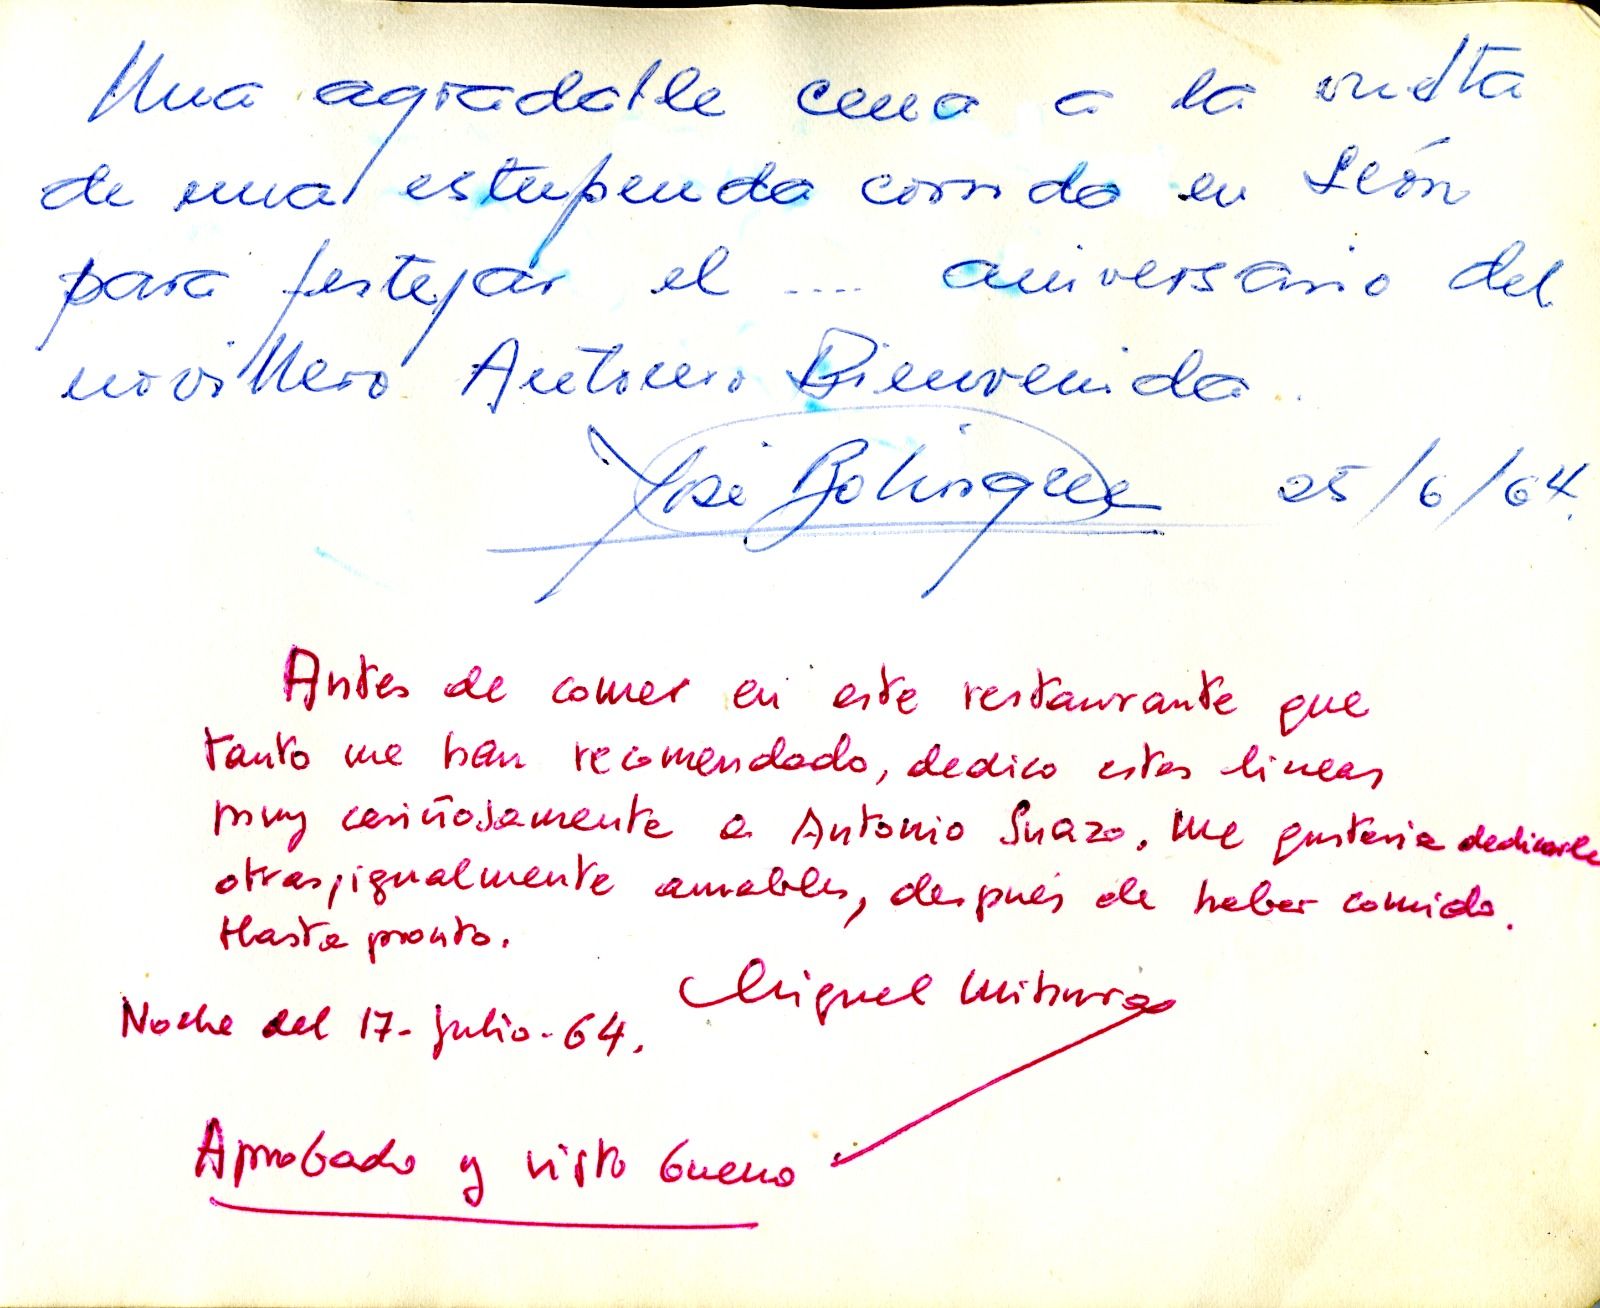 Una agradable cena a la vuelta
de una estupenda corrida en León
para festejar el .... aniversario del
novillero Antonio Bienvenida.
José Bolinaque 25/6/64.
Antes de comer en este restaurante que
tanto me han recomendado, dedico estas lineas
muy cariñosamente a Antonio Suazo. Me gustaria dedicarle
otras, igualmente amables, después de haber comido.
Hasta pronto.
Miguel Mihura
Noche del 17-Julio-64.
Aprobado y visto bueno